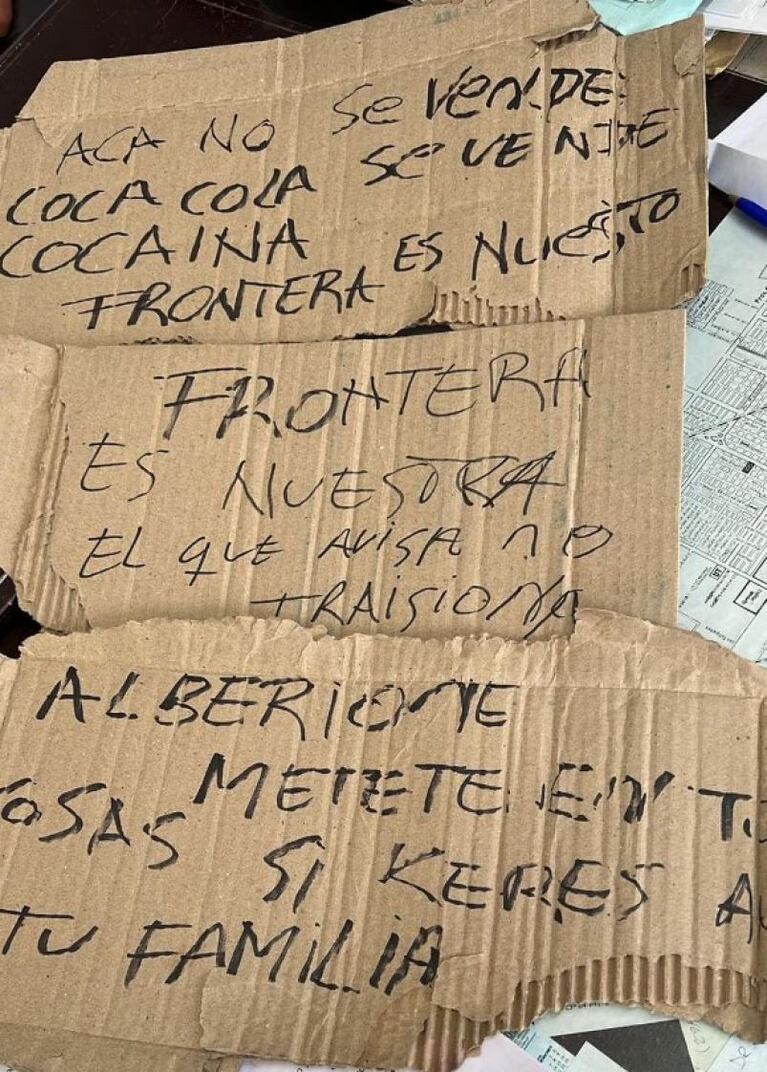 ACA NO Se VeNDE
COCA COLA Se VENDE
COCAINA ES NUESTO
FRONTERA
FRONTERA
ES NUESTRA
EL QUE AVISA NO
TRAISIONA
ALBERIONE
METETE EN
OSAS SI KERES
TU FAMILIA